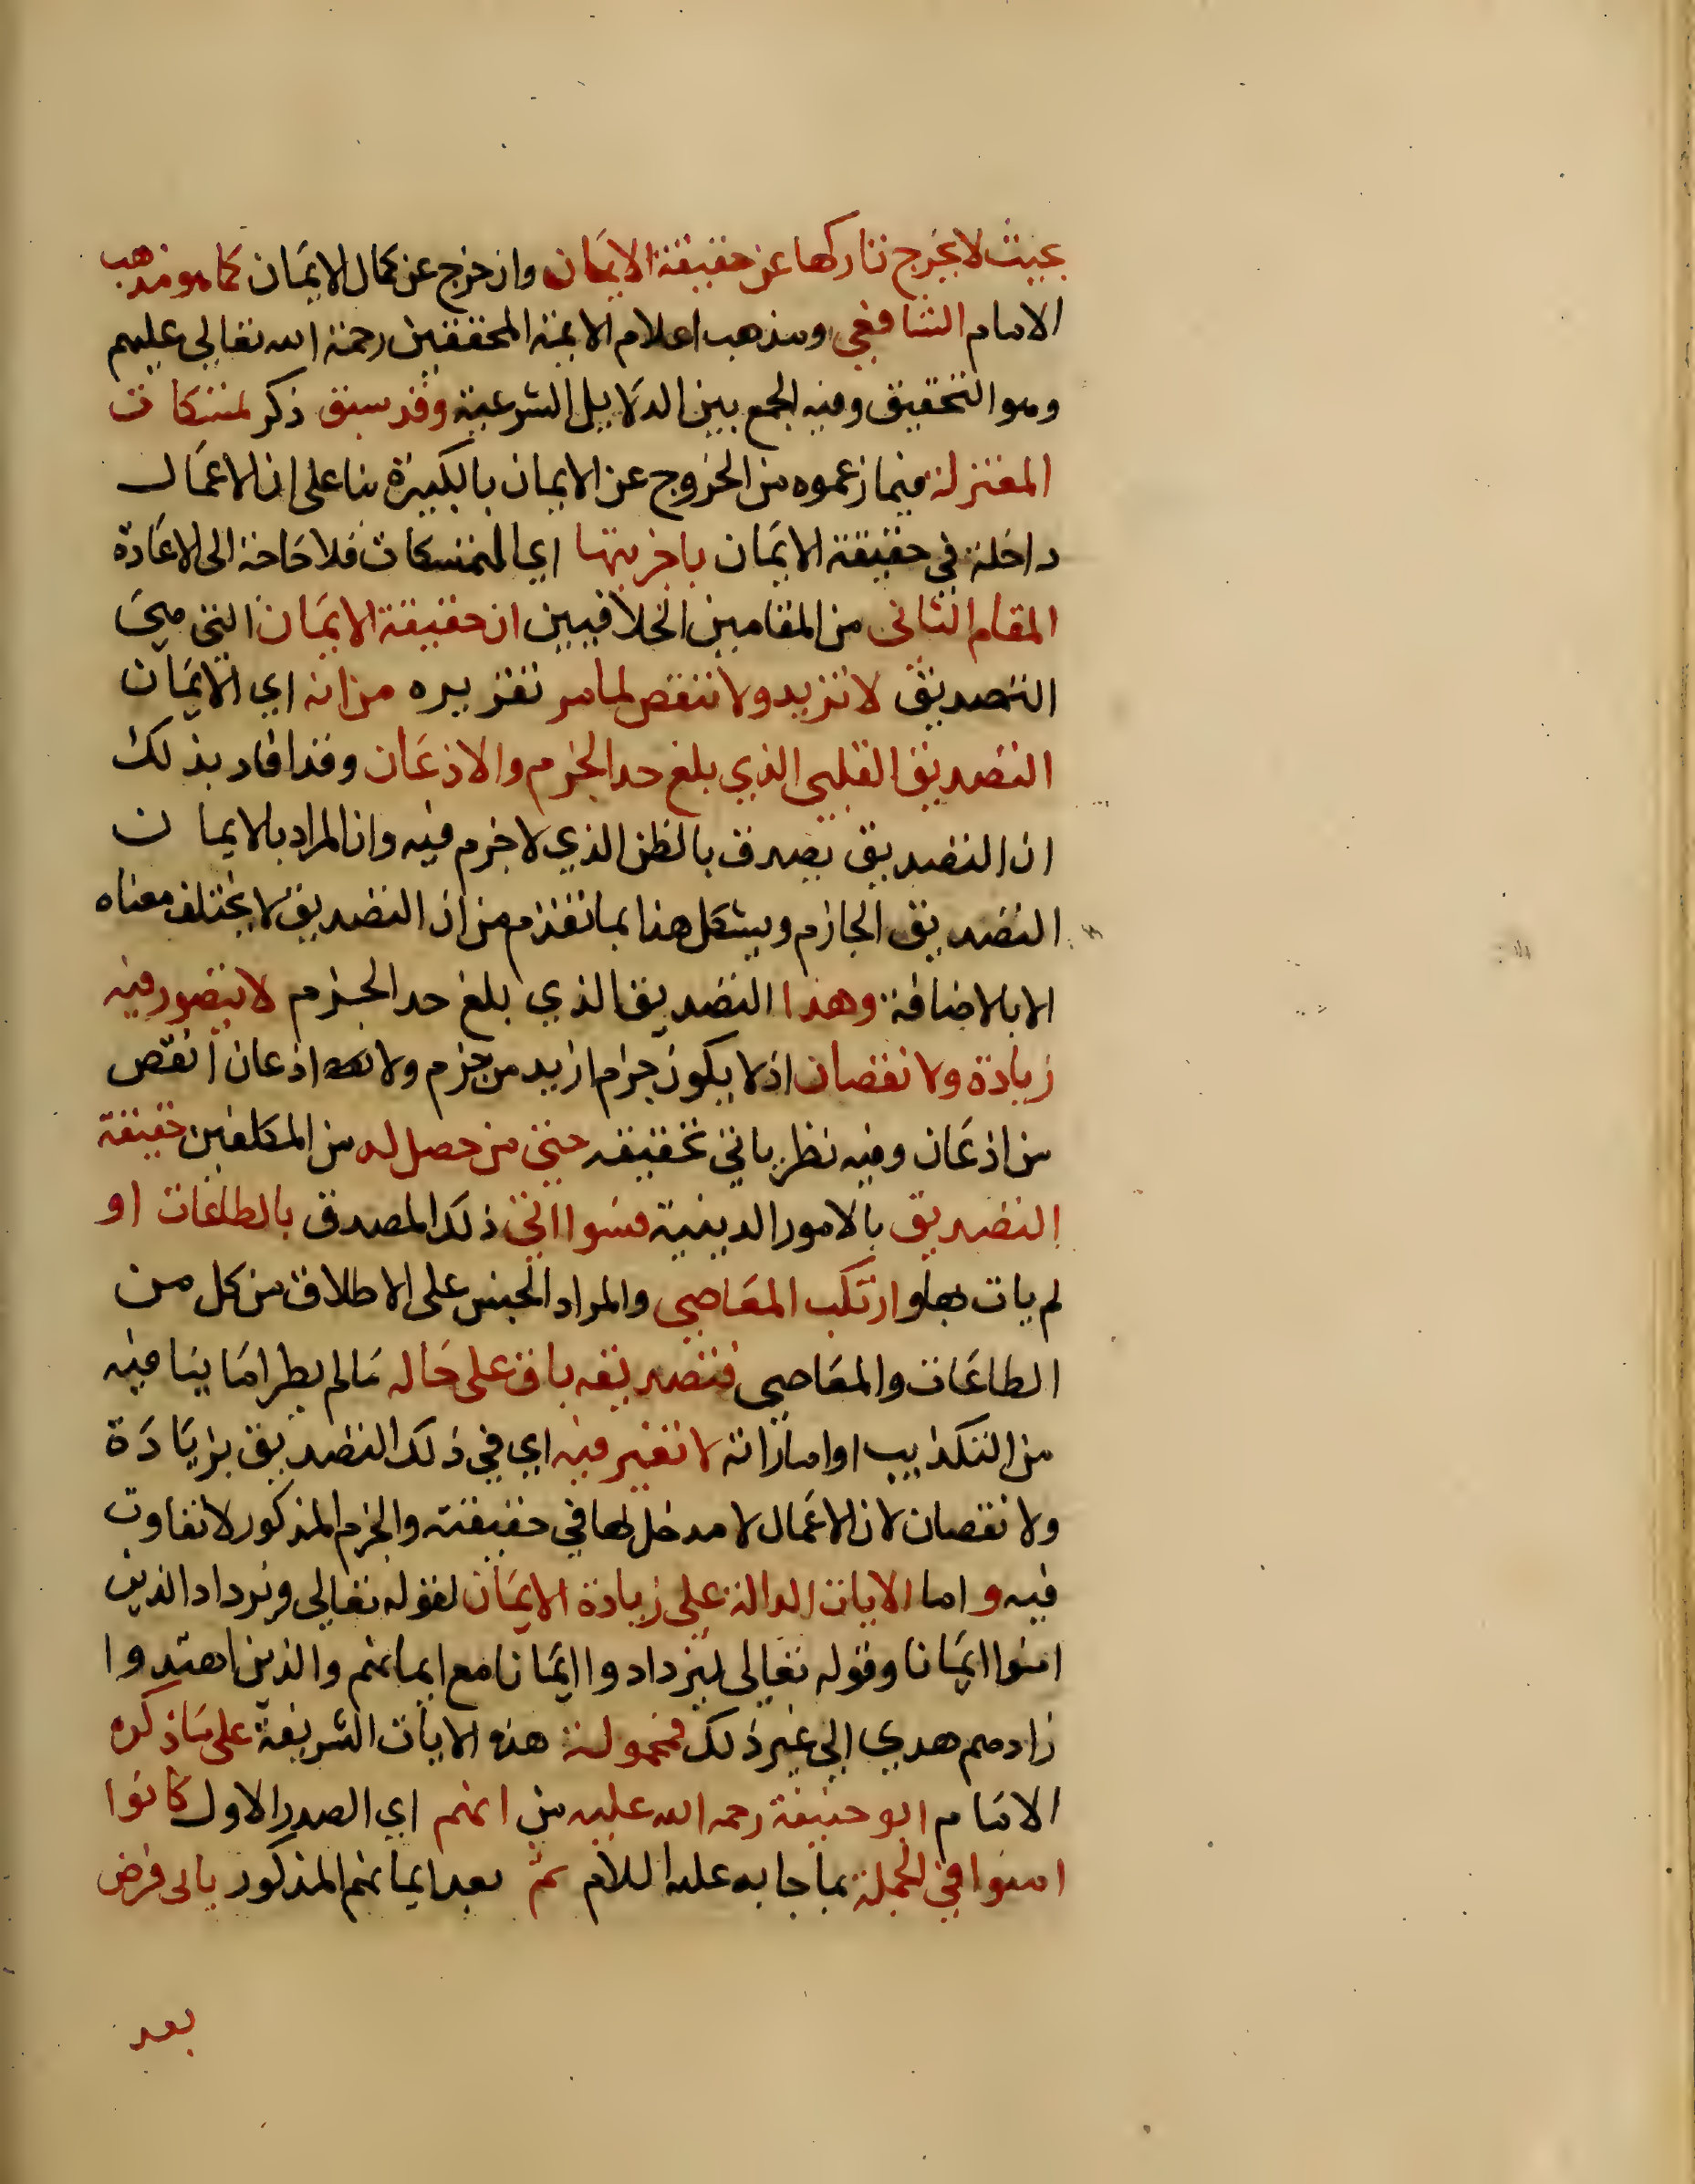 بحيث لا يخرج تاركها عن حقيقة الايمان وان خرج عن كمال الايمان كما هو مذهب
الامام الشافعي ومذهب اعلام الايمة المحققين رحمة الله تعالى عليهم
وهو التحقيق وفيه الجمع بين الدلايل الشرعية وقد سبق ذكر تمسكات
المعتزلة فيما زعموه من الخروج عن الايمان بالكبيرة بنا على ان الاعمال
داخلة في حقيقة الايمان باجوبتها اي المتمسكات فلا حاجة الى الاعادة
المقام الثاني من المقامين الخلافيين ان حقيقة الايمان التي هي
التصديق لا تزيد ولا تنقص لما مر تقريره من انه اي الايمان
التصديق القلبي الذي بلغ حد الجزم والاذعان وقد افاد بذلك
ان التصديق يصدق بالظن الذي لا جزم فيه وان المراد بالايمان
التصديق الجازم ويشكل هذا بما تقدم من ان التصديق لا يختلف معناه
الا بالاضافة وهذا التصديق الذي بلغ حد الجزم لا يتصور فيه
زيادة ولا نقصان اذ لا يكون جزم ازيد من جزم ولا اذعان انقص
من اذعان وفيه نظر ياتي تحقيقه حتى من حصل له من المكلفين حقيقة
التصديق بالامور الدينية فسوا اتى ذلك المصدق بالطاعات او
لم يات بها او ارتكب المعاصي والمراد الجنس على الاطلاق من كل من
الطاعات والمعاصي فتصديقه باق على حاله ما لم يطرا ما ينافيه
من التكذيب او اماراته لا تغير فيه اي في ذلك التصديق بزيادة
ولا نقصان لان الاعمال لا مدخل لها في حقيقته والجزم المذكور لا تفاوت
فيه واما الايات الدالة على زيادة الايمان لقوله تعالى ويزداد الذين
امنوا ايمانا وقوله تعالى ليزدادوا ايمانا مع ايمانهم والذين اهتدوا
زادهم هدي الى غير ذلك فمحمولة هذه الايات الشريفة على ما ذكره
الامام ابو حنيفة رحمه الله عليه من انهم اي الصدر الاول كانوا
امنوا في الجملة بما جا به عليه اللام ثم بعد ايمانهم المذكور ياتي فرض
بعد